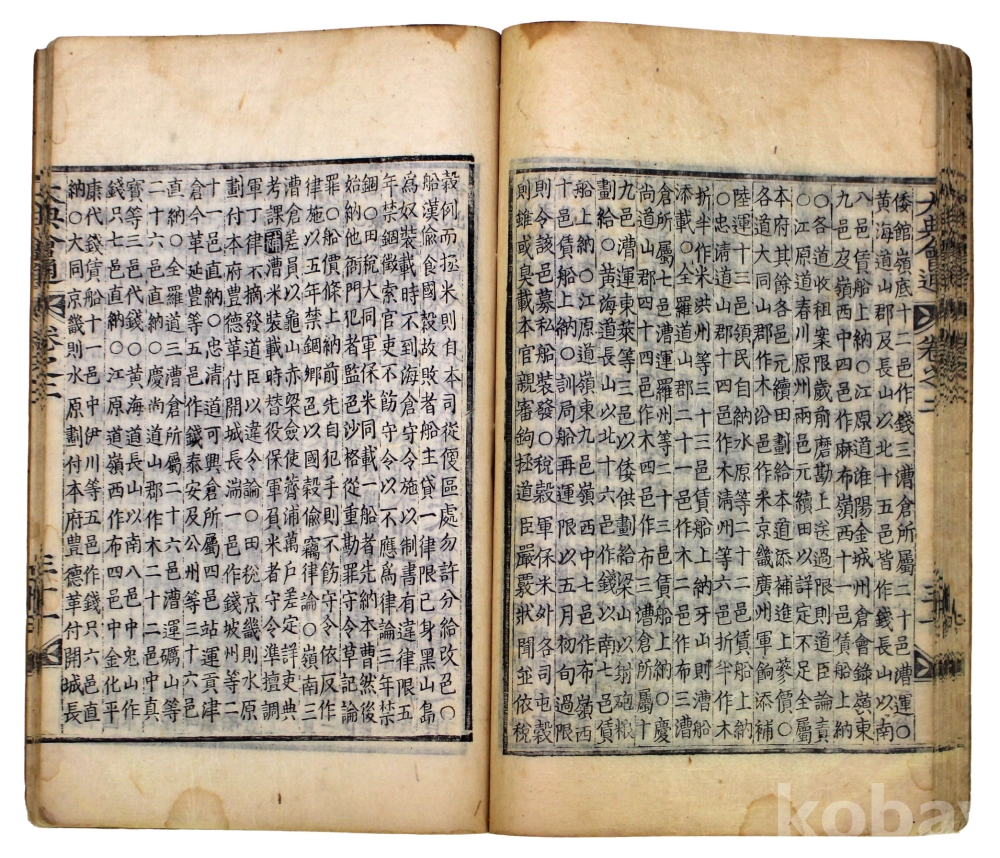 倭館嶺底十二邑作錢三漕倉所屬二十邑漕運○
黃海道山郡及長山以北十五邑皆作錢長山以南
八邑賃船上納○江原道淮陽金城州倉會錄嶺東
九邑召嶺西中四邑作麻布嶺西十一邑賃船上納
○各道收租案限歲前磨勘上送過限則道臣論責
○江原道春川原城兩邑元續田以詳定不足全屬
本府其餘各邑元續田劃給本道添補進上蔘價○
各道大同山郡作木沿邑作米京畿廣州軍餉添補
陸運十三邑須民自納水原等二十二邑賃船上納
○忠淸道山郡十四邑作木淸州等六邑折半作木
折半作米洪州等三十三邑賃船上納牙山則漕船
添載○全羅道山郡二十一邑作木二邑作布三漕
倉所屬漕運羅州等二十三邑賃船上納○慶
尚道山郡作木四十四邑作布三漕倉所屬十
九邑漕運東萊等三邑以倭供劃給梁山以射砲粮
劃給○黃海道長山以北十三邑作錢以南七邑賃
船上納○江原道嶺東九邑嶺西中七邑作布嶺西
十邑賃船上納○訓局船再運限以五月初旬過限
則令該邑募私船裝發○稅穀軍保米外各司屯穀
則雖或臭載本官親審鉤拯道臣嚴覈狀聞並依稅
大典會通 卷之二
穀例而拯米則自本司從便區處勿許分給改色○
船漢偸食國穀故敗者船主貸一律限己身黑山島
爲奴裝載時不到海倉守令施以制書有違律限五
年禁錮徵索官吏勿揀守令以不應爲律論三年禁
錮○田稅大同軍保米同載一船者先納本曹然後
始納他衙門犯者監色沙格從重勘罪守令草記論
罪○價船上納前先自犯手則不飭守令依反作
律施以五年禁錮鄉色以國穀偸竊律論○嶺南三
漕倉差員以龜山赤梁僉使薺浦萬戶差定詳吏典
考課關漕米裝載時替役保軍貟米者守令準擅調
軍丁律不摘發道臣以違令論○田稅京畿則水原
劃付本府豊德革付開城長湍一邑作錢坡州等二
十一邑直納○忠淸道可興倉所屬四邑站運貢津
倉今革延豊等五邑作錢泰安及公州三十六邑
直納○全羅道三漕倉所屬二十六邑漕運礪山等
二十六邑直納○慶尚道山郡作木中眞
寶等三邑代錢○黃海道長山以南八邑中兎山作
錢只七邑直納○江原道嶺西作布四邑中金化平
康代錢賃船十一邑中伊川等五邑作錢只六邑直
納○大同京畿則水原劃付本府豊德革付開城長
大典會通 卷之二 三十一
kobay